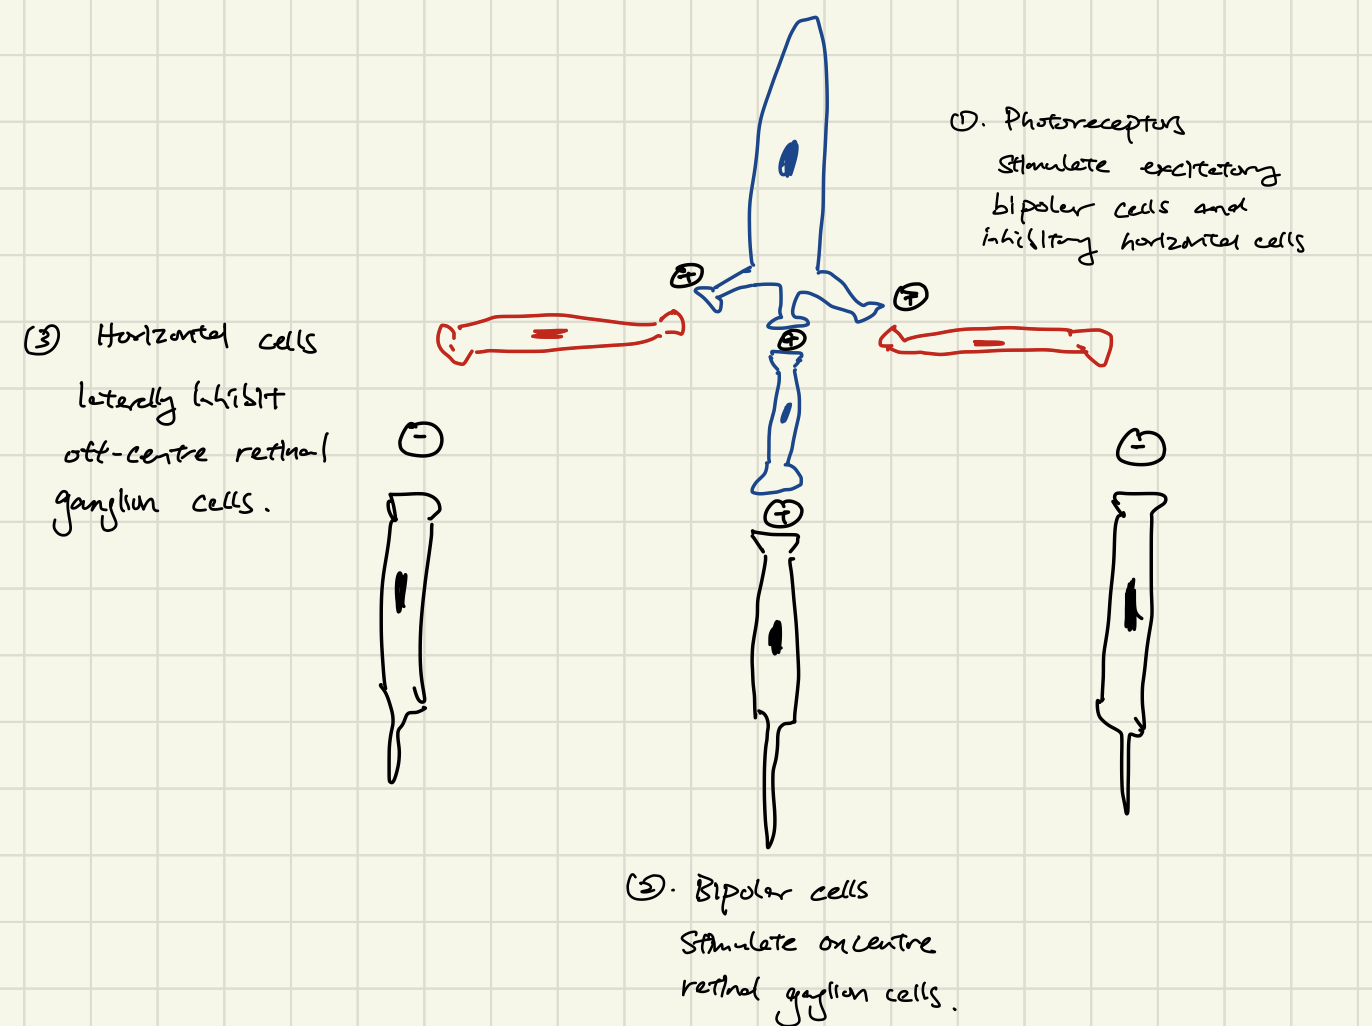 ①. Photoreceptors
stimulate excitatory
bipolar cells and
inhibitory horizontal cells
+
+
+
③ Horizontal cells
laterally inhibit
off-centre retinal
ganglion cells.
-
-
+
②. Bipolar cells
stimulate on centre
retinal ganglion cells.